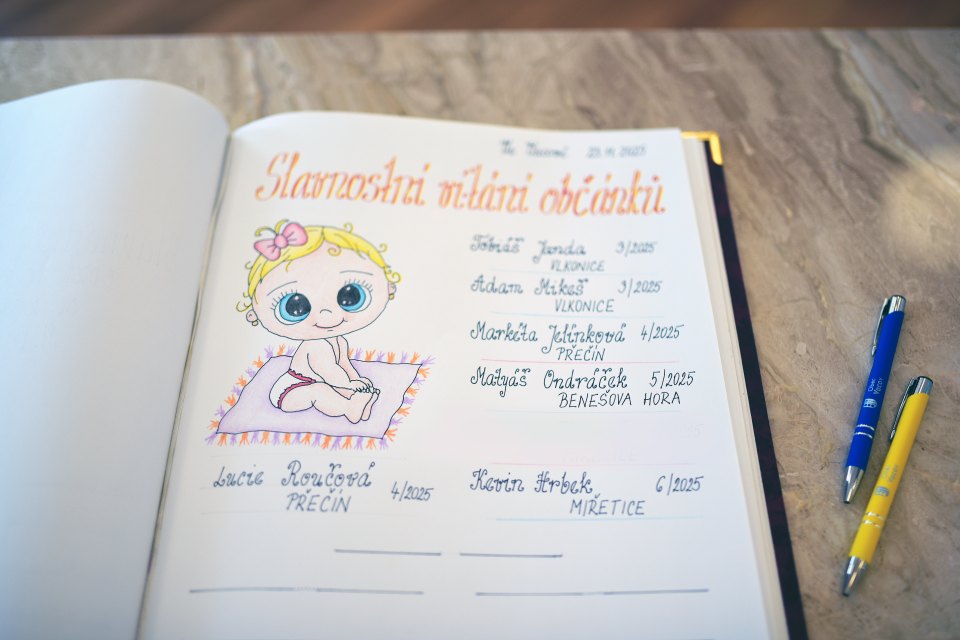 Ve Vacově 23.11.2025
Slavnostní vítání občánků
Tobiáš Janda 3/2025
VLKONICE
Adam Mikeš 3/2025
VLKONICE
Markéta Jelínková 4/2025
PŘEČÍN
Matyáš Ondráček 5/2025
BENEŠOVA HORA
Lucie Roučová 4/2025
PŘEČÍN
Kevin Hrbek 6/2025
MIŘETICE
Obec
Vacov